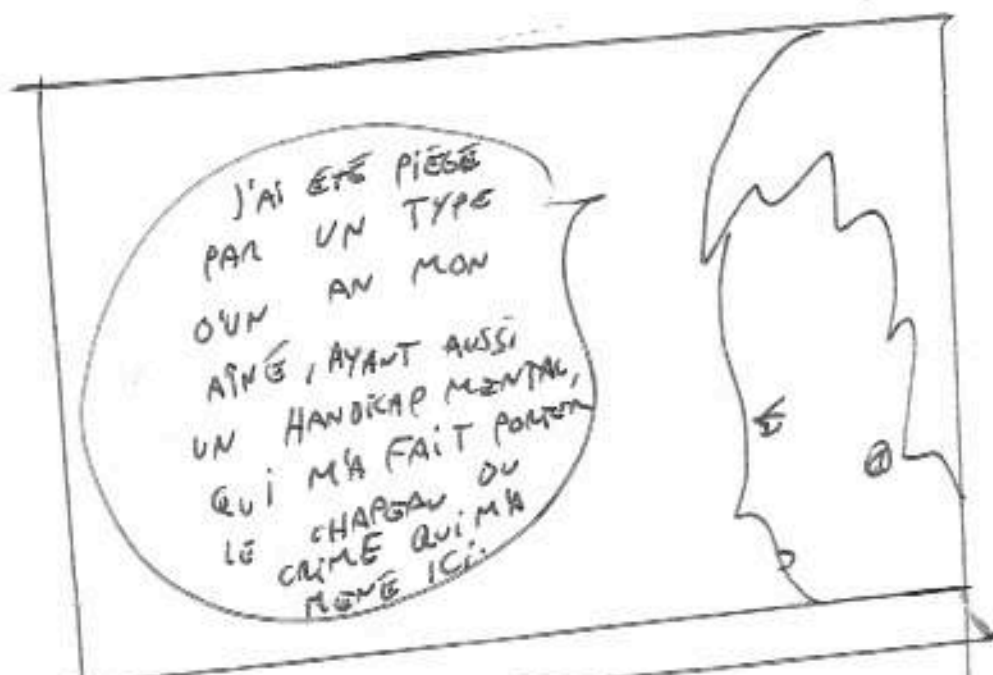 J'AI ÉTÉ PIÉGÉ
PAR UN TYPE
D'UN AN MON
AÎNÉ, AYANT AUSSI
UN HANDICAP MENTAL,
QUI M'A FAIT PORTER
LE CHAPEAU DU
CRIME QUI M'A
MENÉ ICI.